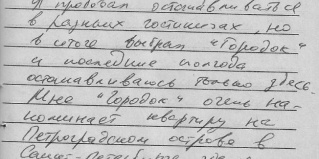 я пробовал останавливаться
в разных гостиницах, но
в итоге выбрал "Городок"
и последние полгода
останавливаюсь только здесь.
Мне "Городок" очень на-
поминает квартиру на
Петроградском острове в
Санкт-Петербурге, где